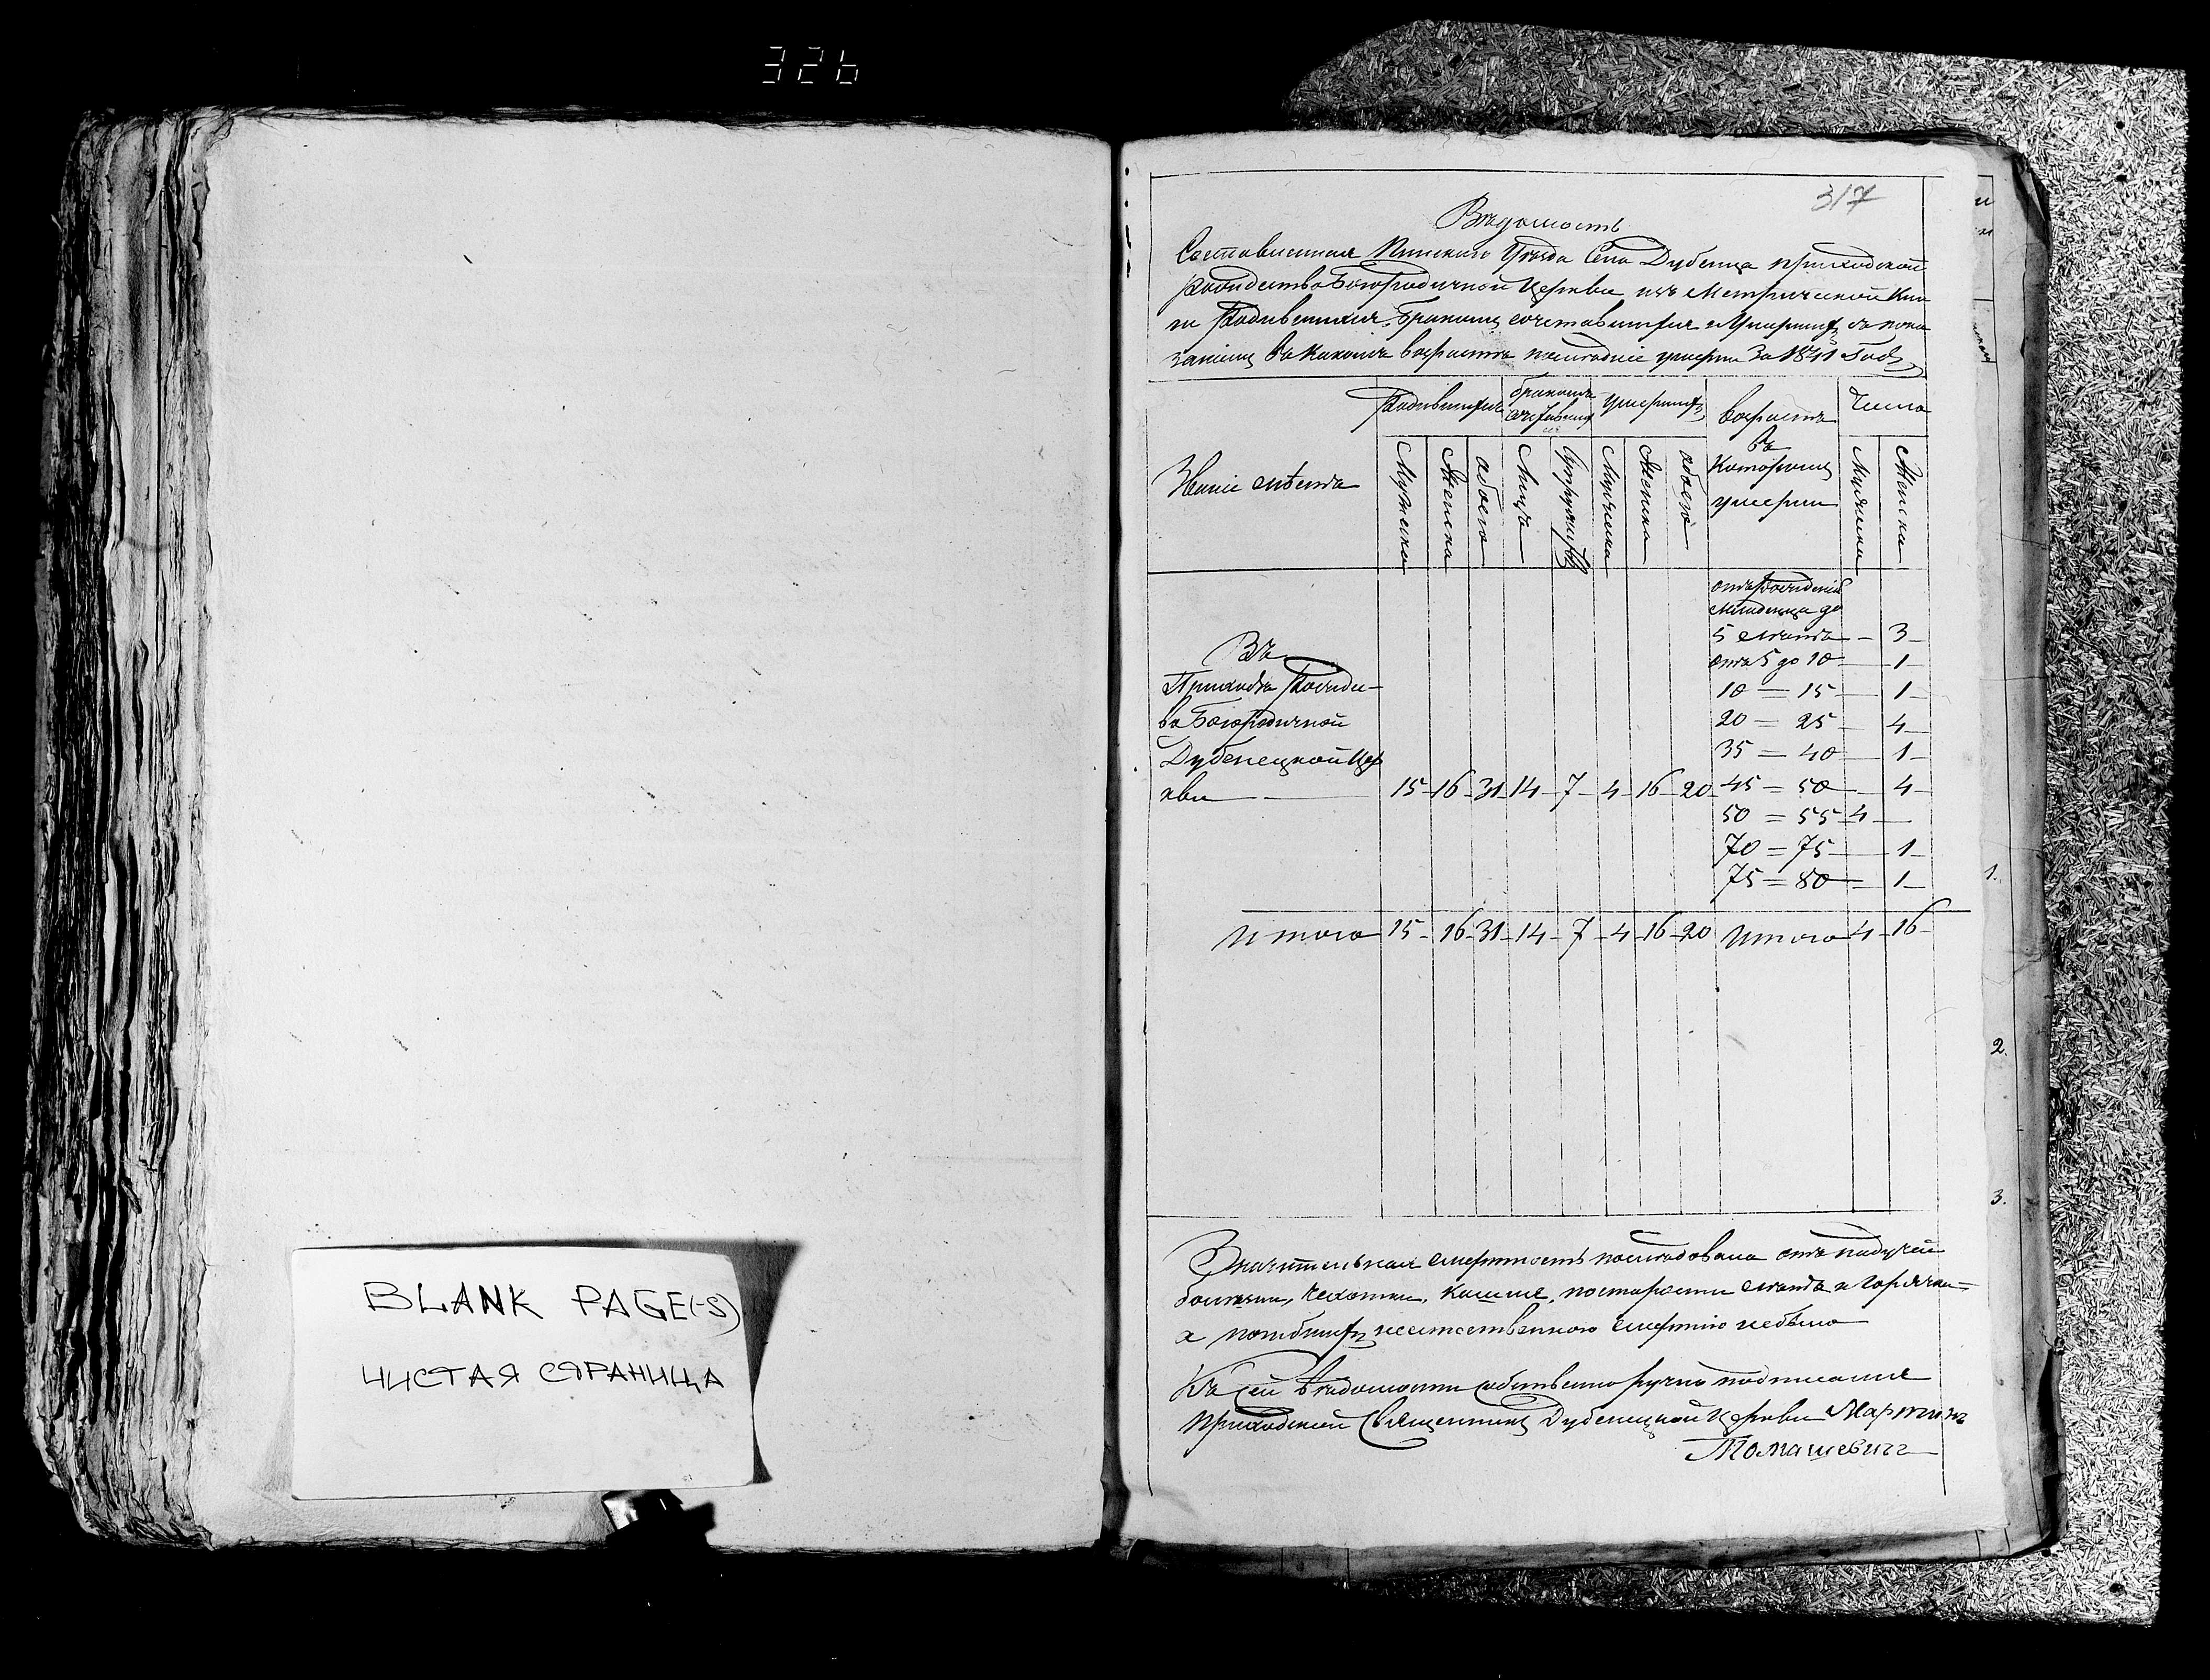 326
BLANK PAGE(-S)
ЧИСТАЯ СТРАНИЦА
317
Вѣдомость
Составленная Пинскаго Уѣзда Села Дубенца приходской
рождество Богородичной Церкви изъ Метрической Кни
ги Родившихся, Бракомъ сочетавшихся и Умершихъ съ пока
заніемъ въ какомъ возрастѣ послѣдніе умерли За 1841 Годъ
Родившихся бракомъ умершихъ возрастъ Число
Званіе мѣста
Мужеска Женска обоего Лицъ Супружествъ Мужеска Женска обоего
въ которомъ умерли
Мужеска Женска
отъ рожденія
младенца до
5 лѣтъ — 3
отъ 5 до 10 — 1
Въ
Приходѣ Рожде- 10 = 15 — 1
во Богородичной 20 = 25 — 4
Дубенецкой Цер 35 = 40 — 1
кви 15 16 31 14 7 4 16 20 45 = 50 — 4
50 = 55 4 —
70 = 75 — 1
75 = 80 — 1
Итого 15 16 31 14 7 4 16 20 Итого 4 16
Значительная смертность послѣдовала отъ падучей
болѣзни, чехотки, кашля, по старости лѣтъ и горячки
а погибшихъ неестественною смертію небыло
Къ сей вѣдомости собственно ручно подписался
Приходской Священникъ Дубенецкой Церкви Мартинъ
Томашевичъ
1.
2.
3.